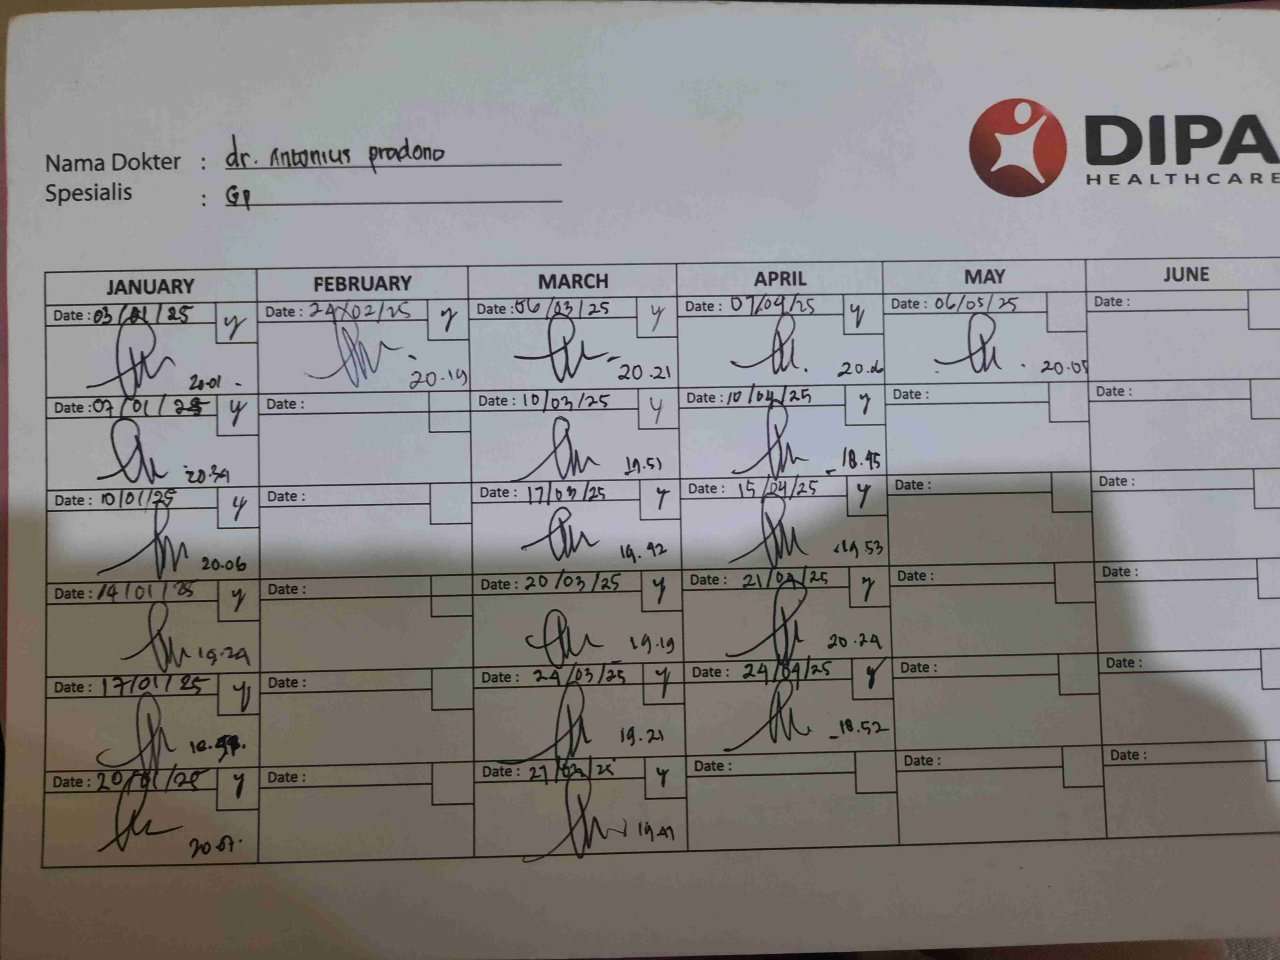 DIPA
HEALTHCARE
Nama Dokter : dr. Antonius pradono
Spesialis : GP
JANUARY FEBRUARY MARCH APRIL MAY JUNE
Date : 03/01/25 y Date : 24/02/25 y Date : 06/03/25 y Date : 07/04/25 y Date : 06/05/25 Date :
20.01 20.19 20.21
Date : 07/01/25 y Date : Date : 10/03/25 y Date : 10/04/25 y Date : Date :
20.34 19.51 18.45
Date : 10/01/25 y Date : Date : 17/03/25 y Date : 15/04/25 y Date : Date :
20.06 19.42 19.53
Date : 14/01/25 y Date : Date : 20/03/25 y Date : 21/04/25 y Date : Date :
19.24 19.19 20.24
Date : 17/01/25 y Date : Date : 24/03/25 y Date : 24/04/25 y Date : Date :
19.21 18.52
Date : 20/01/25 y Date : Date : 27/03/25 y Date : Date : Date :